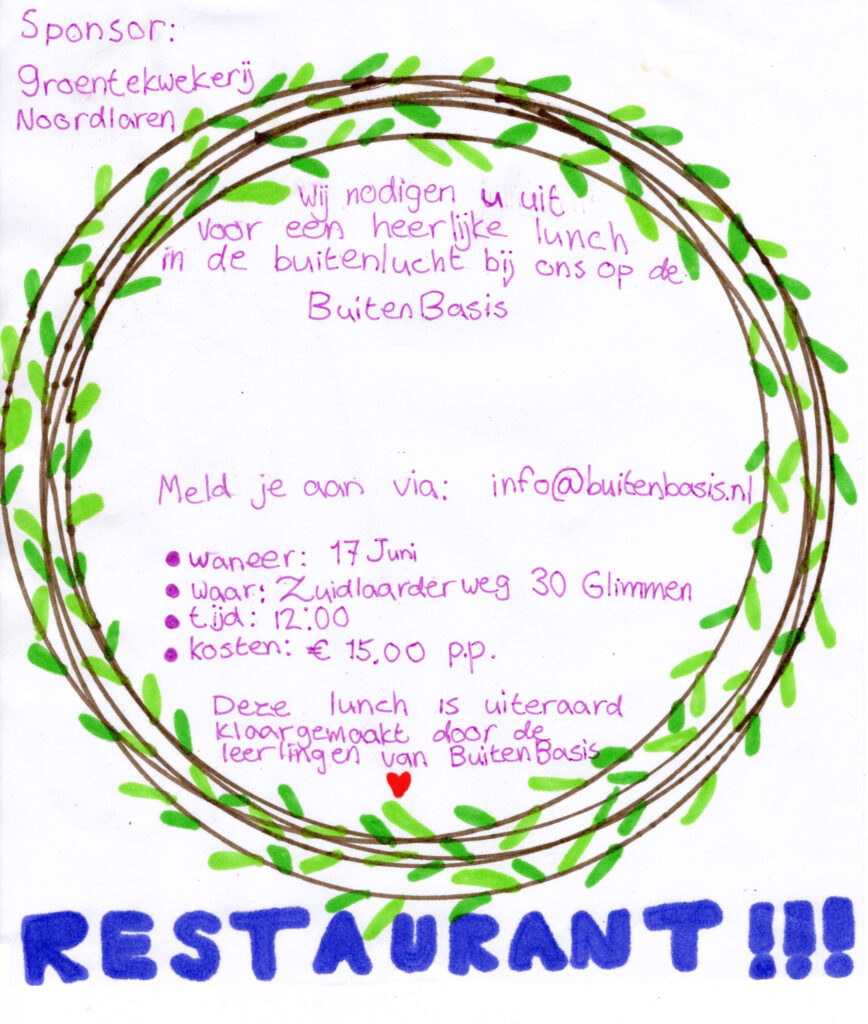 Sponsor:
groentekwekerij
Noordlaren
Wij nodigen u uit
voor een heerlijke lunch
in de buitenlucht bij ons op de
BuitenBasis
Meld je aan via: info@buitenbasis.nl
• waneer: 17 Juni
• waar: Zuidlaarderweg 30 Glimmen
• tijd: 12:00
• kosten: € 15.00 p.p.
Deze lunch is uiteraard
klaargemaakt door de
leerlingen van BuitenBasis
RESTAURANT!!!